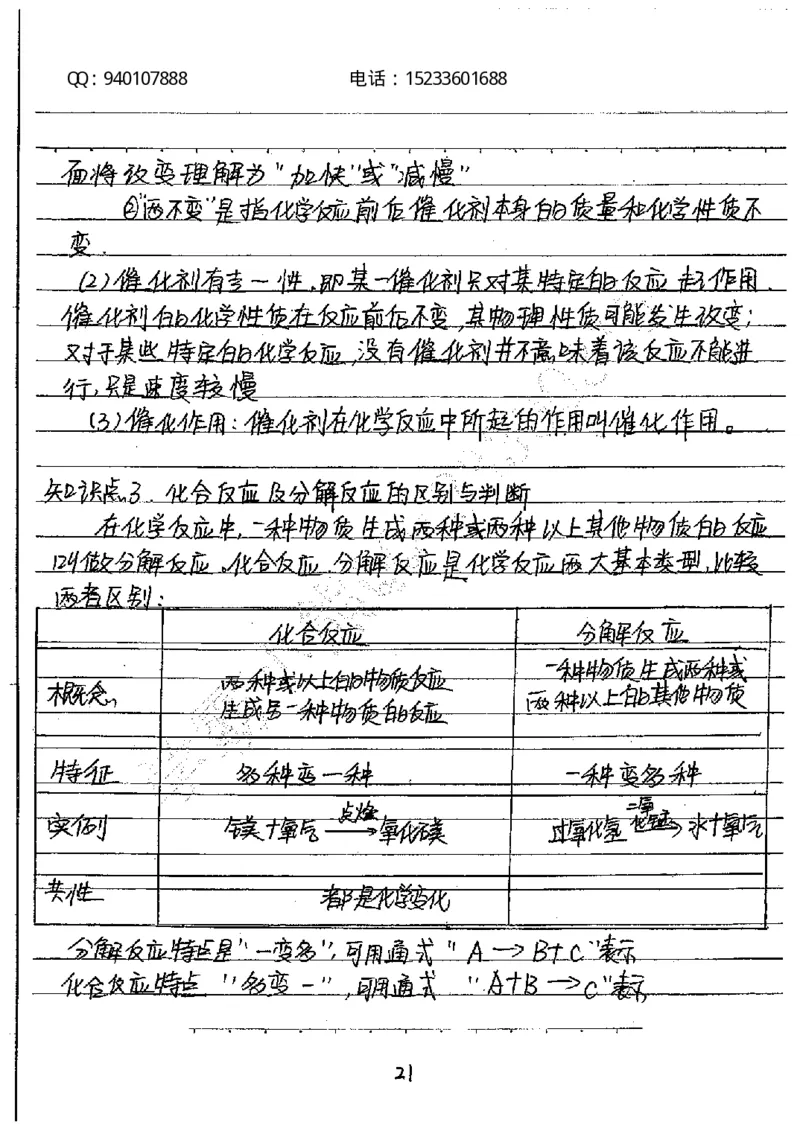 QQ：940107888 电话：15233601688
面将改变理解为"加快"或"减慢"
②"两不变"是指化学反应前后催化剂本身的质量和化学性质不
变.
(2)催化剂有专一性,即某一催化剂只对某特定的反应起作用.
催化剂的化学性质在反应前后不变,其物理性质可能发生改变;
对于某些特定的化学反应,没有催化剂并不意味着该反应不能进
行,只是速度较慢
(3)催化作用:催化剂在化学反应中所起的作用叫催化作用。
知识点3. 化合反应及分解反应的区别与判断
在化学反应中,一种物质生成两种或两种以上其他物质的反应
叫做分解反应。化合反应、分解反应是化学反应两大基本类型,比较
两者区别:
化合反应 分解反应
概念 两种或以上的物质反应 一种物质生成两种或
生成另一种物质的反应 两种以上的其他物质
特征 多种变一种 一种变多种
实例 镁+氧气 点燃→ 氧化镁 过氧化氢 二氧化锰→ 水+氧气
共性 都是化学变化
分解反应特点是"一变多",可用通式"A→B+C"表示
化合反应特点"多变一",可用通式"A+B→C"表示
21